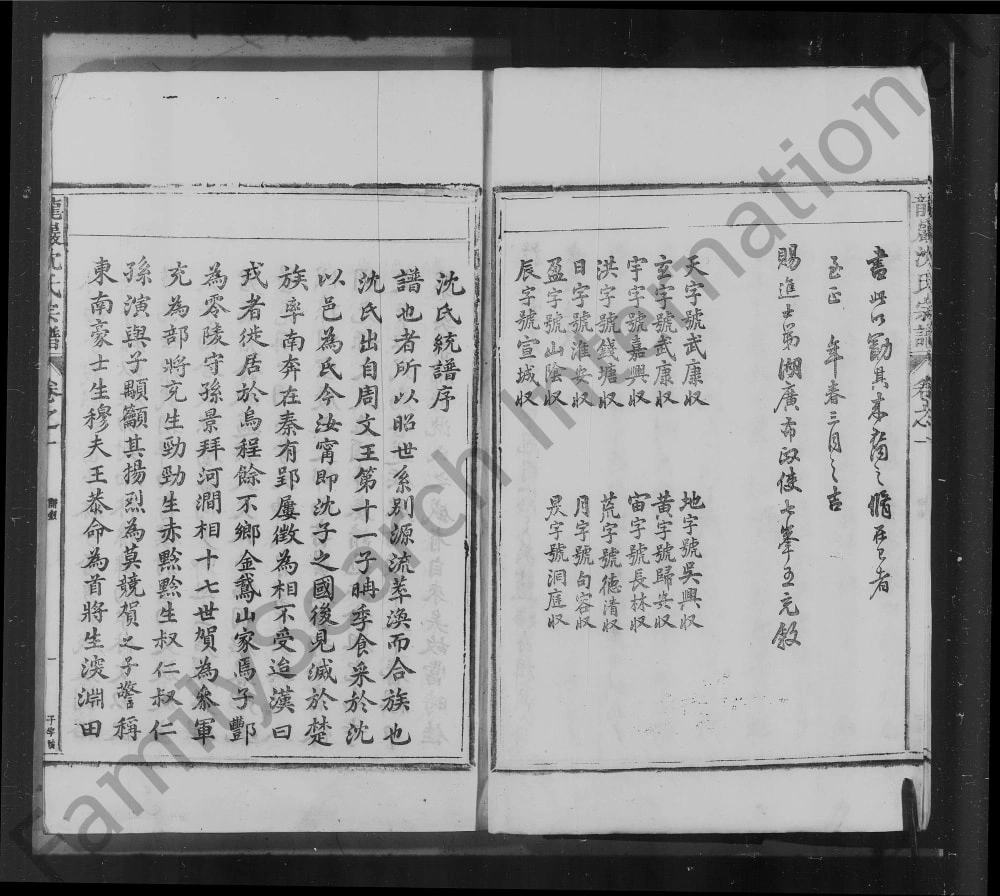 龍巖沈氏宗譜 卷之一
書此以勸其來裔之脩存者
至正 年春三月之吉
賜進士第湖廣布政使七峯王元敍
天字號武康収 地字號吳興収
玄字號武康収 黃字號歸安収
宇字號嘉興収 宙字號長林収
洪字號錢塘収 荒字號德清収
日字號淮安収 月字號句容収
盈字號山陰収 昃字號洞庭収
辰字號宣城収
沈氏統譜序
譜也者所以昭世系別源流萃渙而合族也
沈氏出自周文王第十一子冉季食采於沈
以邑為氏今汝甯即沈子之國後見滅於楚
族率南奔在秦有郢屢徵為相不受迨漢曰
戎者徙居於烏程餘不鄉金鵝山家焉子酆
為零陵守孫景拜河澗相十七世賀為叅軍
充為部將充生勁勁生赤黔黔生叔仁叔仁
孫演與子顒籲其揚烈為莫競賀之子警稱
東南豪士生穆夫王恭命為首將生淵田
龍巖沈氏宗譜 卷之一
一
FamilySearch International